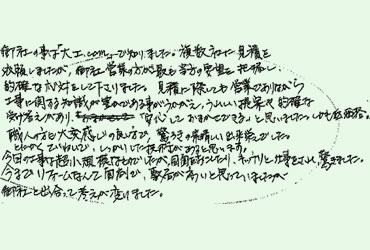 御社の事は「大工レビュー」で知りました。複数社に見積を
依頼しましたが、御社営業の方が最も当方の要望を把握し
的確な対応をして下さりました。見積に際しても営業でありながら
工事に関する知識が豊かである事がうかがえ、うれしい提案や的確な
受け答えがあり、「安心しておまかせできる」と思いました。しかも低価格。
職人の方も大変感じの良い方で、驚きの素晴しい出来栄でした。
とにかくていねいで、しっかりした技術があると思います。
今回の工事は超小規模なものでしたが、面倒がらずに、キッチリと仕事をされ、驚きました。
今までリフォームなんて面倒だし、敷居が高いと思っていましたが
御社と出会って考えが変りました。